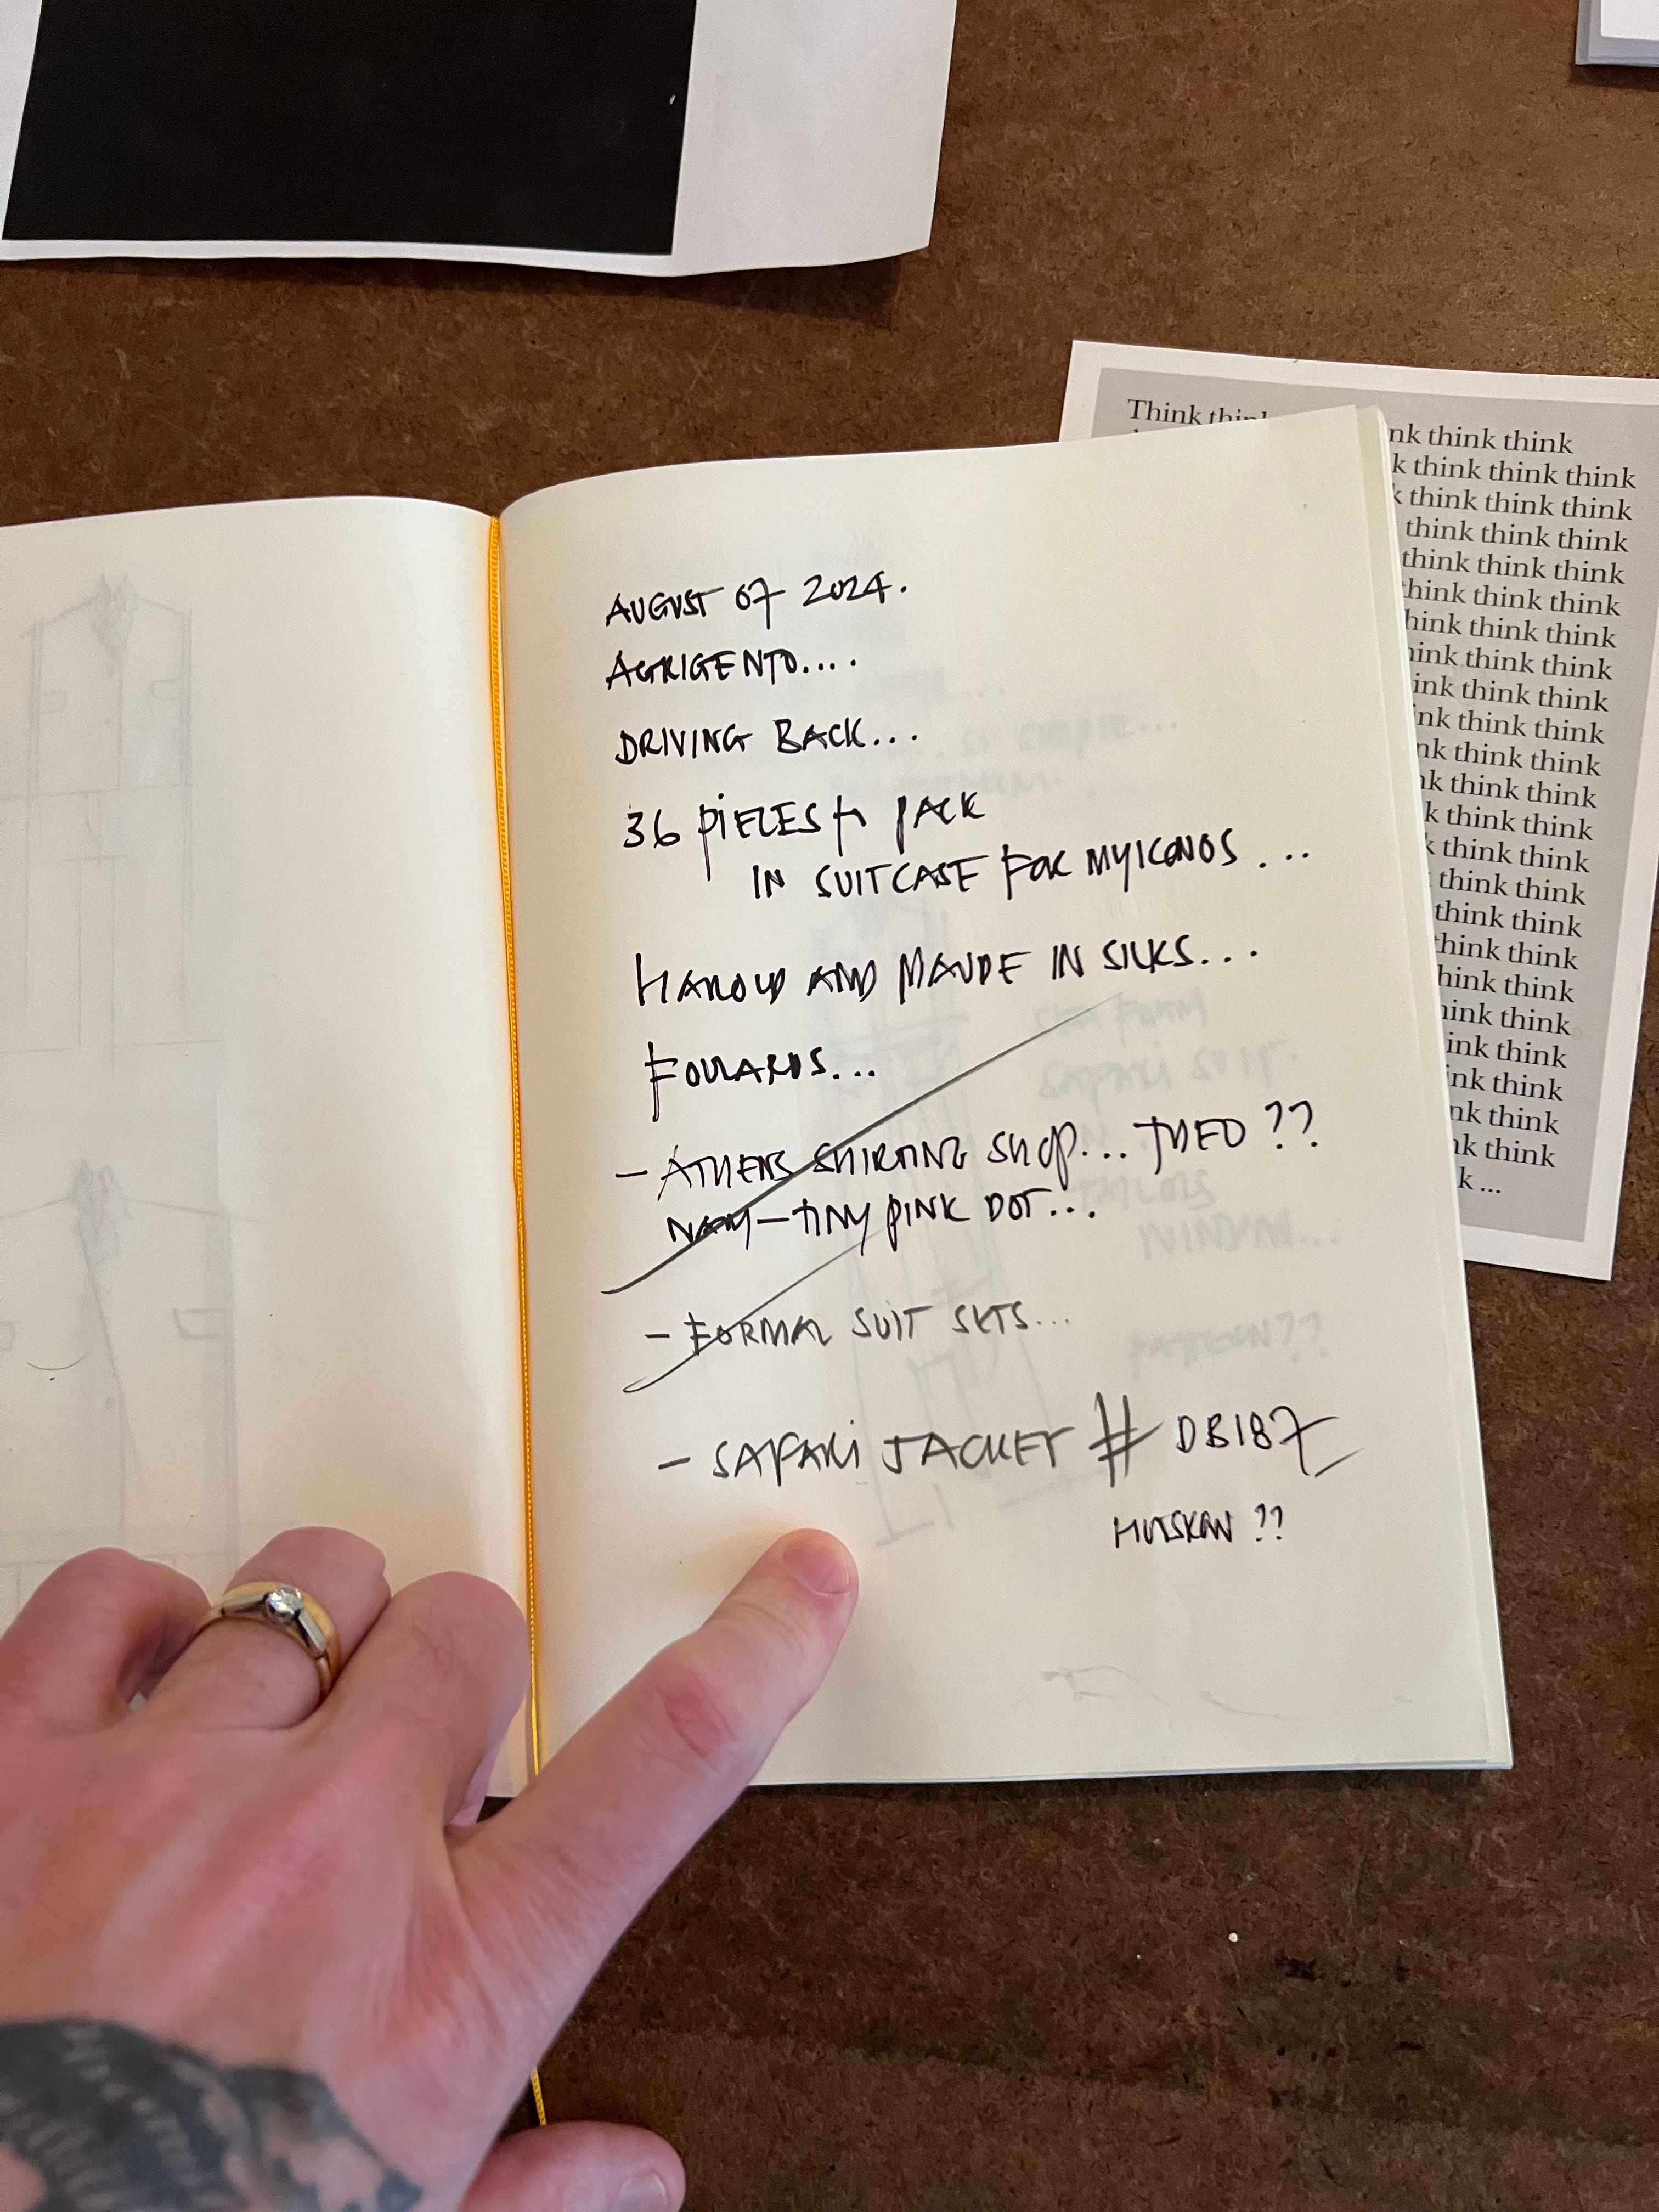 AUGUST 07 2024.
AGRIGENTO....
DRIVING BACK...
36 PIECES to PACK
IN SUITCASE FOR MYKONOS ...
HAROLD AND MAUDE IN SILKS...
FOULARDS...
- ATHENS SHIRTING SHOP... THEO ??
NAVY - TINY PINK DOT...
- FORMAL SUIT SETS...
- SAFARI JACKET # DB187
??
Think
think think
think think think
think think think
think think think
think think think
think think think
think think
think think
think think
think think
think think
think think
think think
think think
think think
think think
think think
think think
think think
think think
think
think
think
think
...
SAFARI SUIT.
PATTERN??